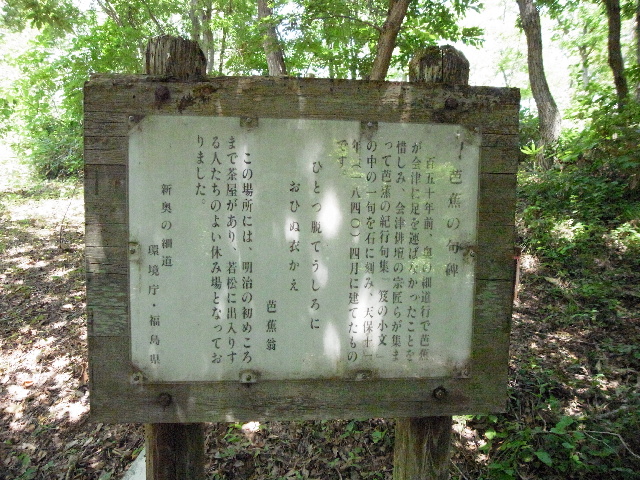 芭蕉の句碑
百五十年前、奥の細道行で芭蕉
が会津に足を運ばなかったことを
惜しみ、会津俳壇の宗匠らが集ま
って芭蕉の紀行句集「笈の小文」
の中の一句を石に刻み、天保十一
年(一八四〇)四月に建てたもの
です。
ひとつ脱てうしろに
おひぬ衣かえ
芭蕉翁
この場所には、明治の初めころ
まで茶屋があり、若松に出入りす
る人たちのよい休み場となってお
りました。
新奥の細道
環境庁・福島県